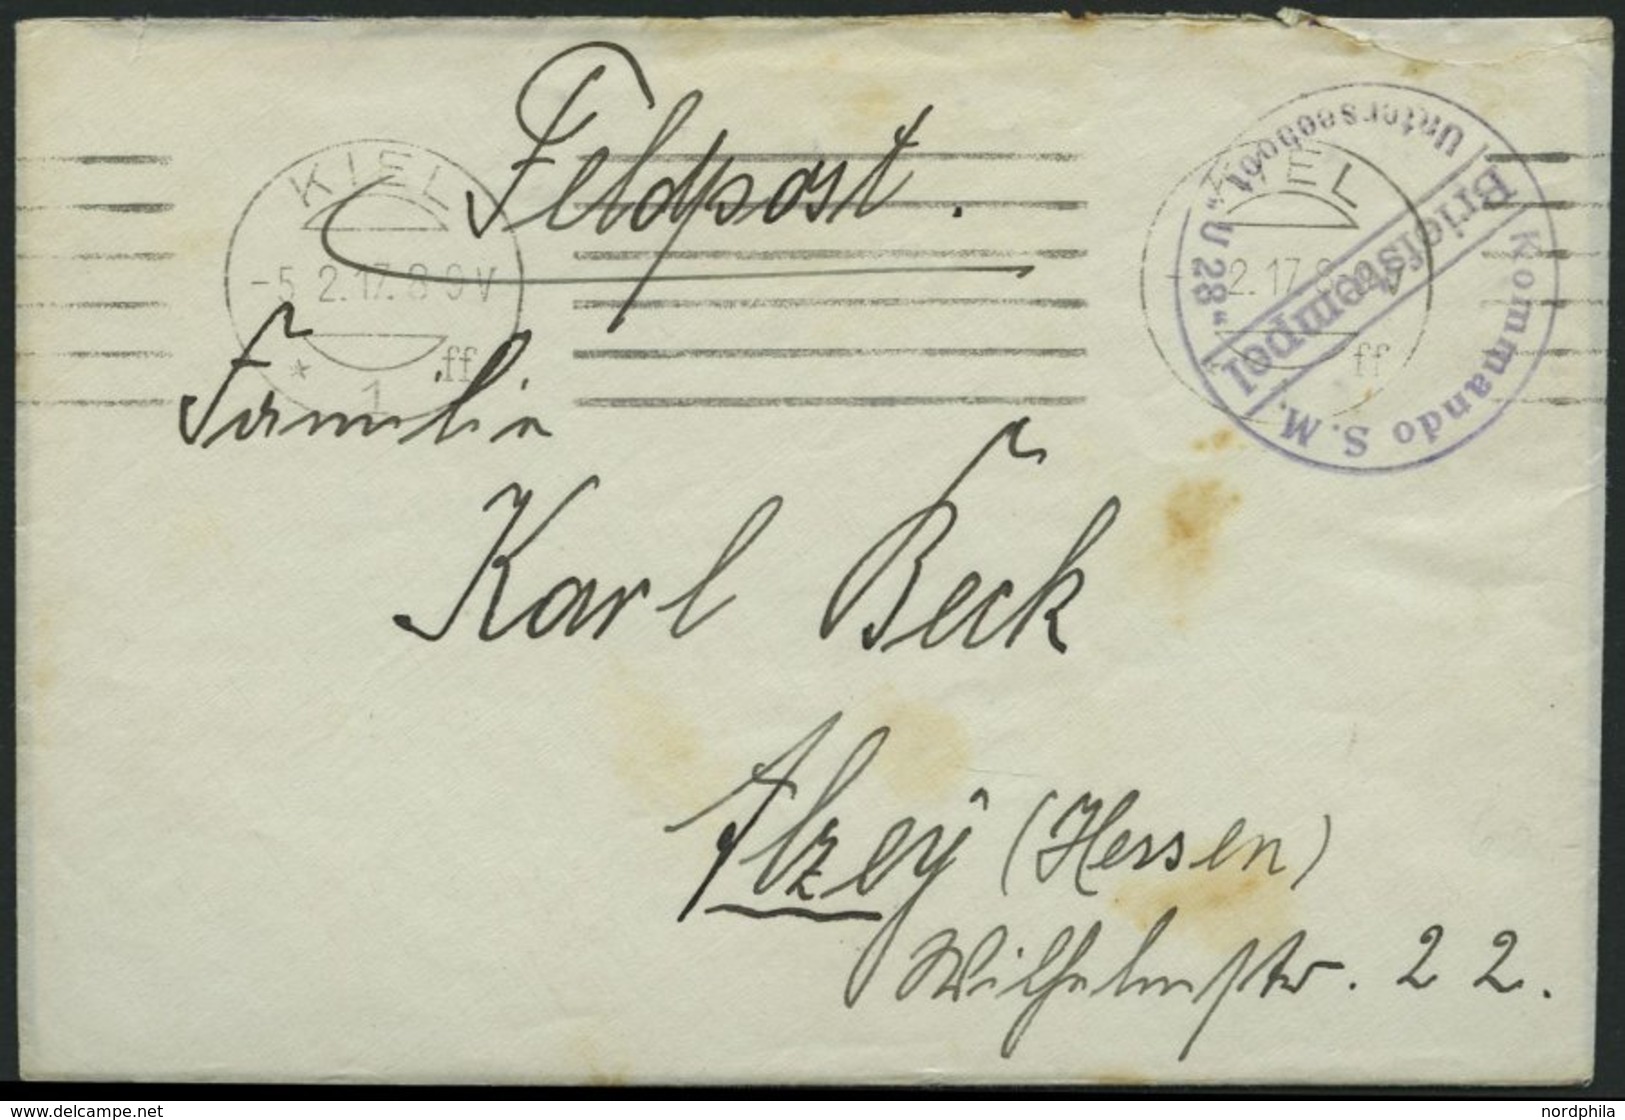 Feldpost.
KIEL
-5.2.17. 8-9V
* 1 ff
KIEL
2.17. 8 V
ff
Kommando S. M. Unterseeboot „U 28“
Briefstempel
Familie
Karl Beck
Alzey (Hessen)
Wilhelmstr. 22.
www.delcampe.net
nordphila